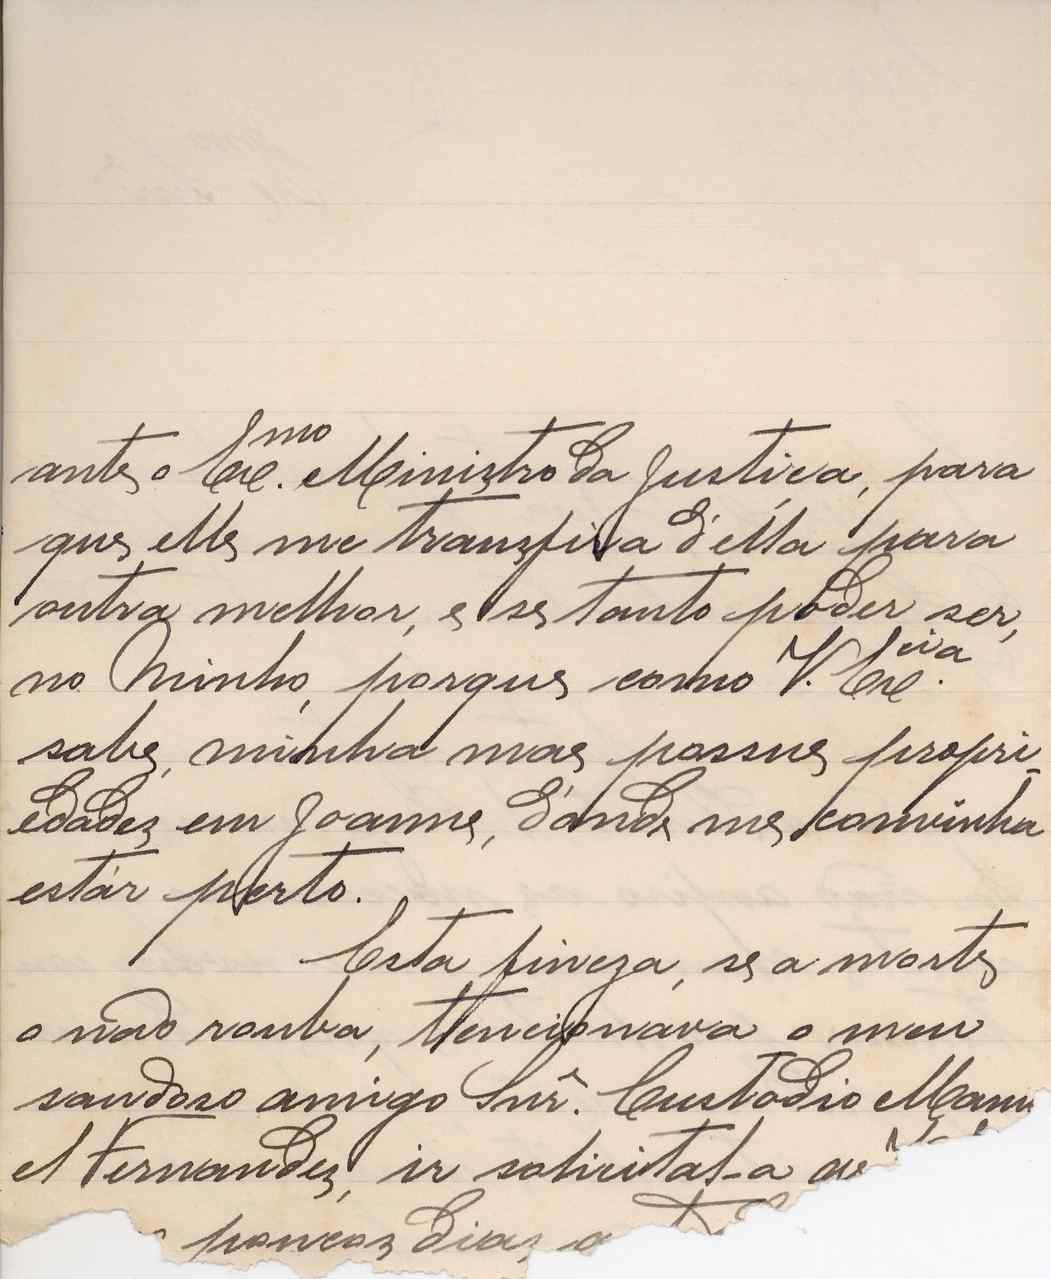 ante o Exc.mo Ministro da Justiça, para
que elle me transfira d'ella para
outra melhor, e se tanto podér ser,
no Minho, porque como V. Exc.cia
sabe, minha mãe possue propri-
edades em Joanne, d'onde me convinha
estár perto.
Esta fineza, se a morte
o não rouba, tencionava o meu
saudoso amigo Snr. Custodio Manu
el Fernandes, ir solicital-a de V.
poucos dias, a